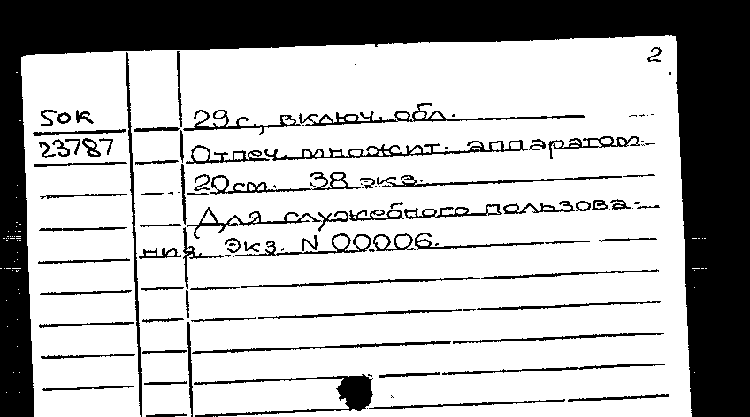 2
50к 29с., включ. обл.
23787 Отпеч. множит. аппаратом
20см. 38 экз.
Для служебного пользова-
ния. Экз. N 00006.